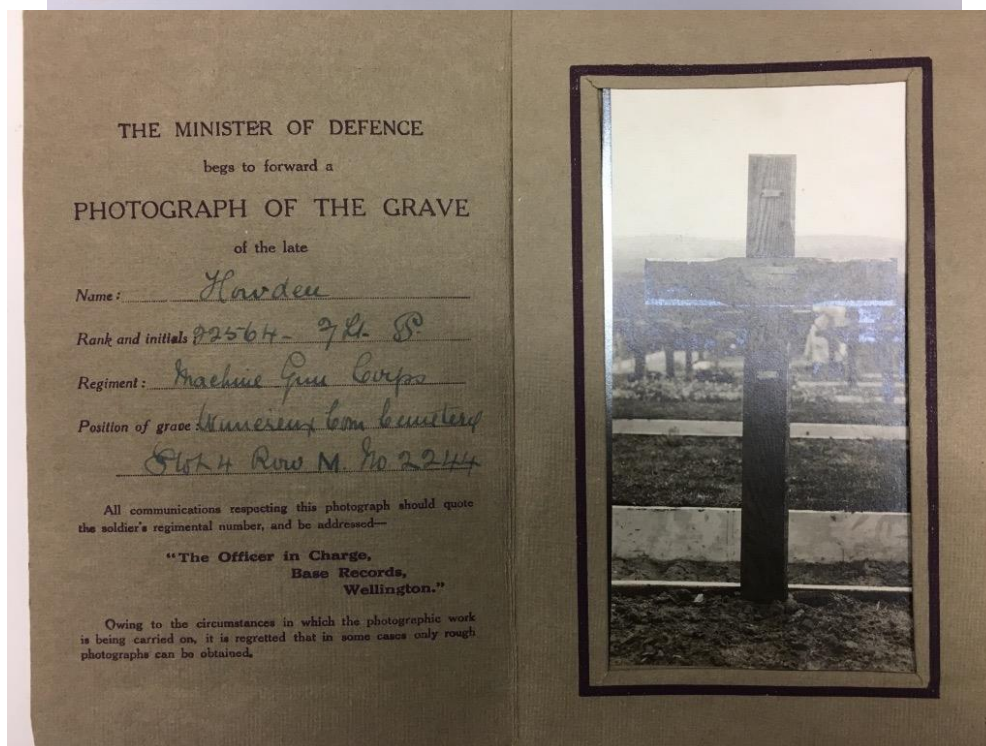 THE MINISTER OF DEFENCE
begs to forward a
PHOTOGRAPH OF THE GRAVE
of the late
Name: Howden
Rank and initials 22564 - Lt. P.
Regiment: Machine Gun Corps
Position of grave: Wimereux Com Cemetery
Plot 4 Row M. No 2244
All communications respecting this photograph should quote
the soldier's regimental number, and be addressed—
"The Officer in Charge,
Base Records,
Wellington."
Owing to the circumstances in which the photographic work
is being carried on, it is regretted that in some cases only rough
photographs can be obtained.